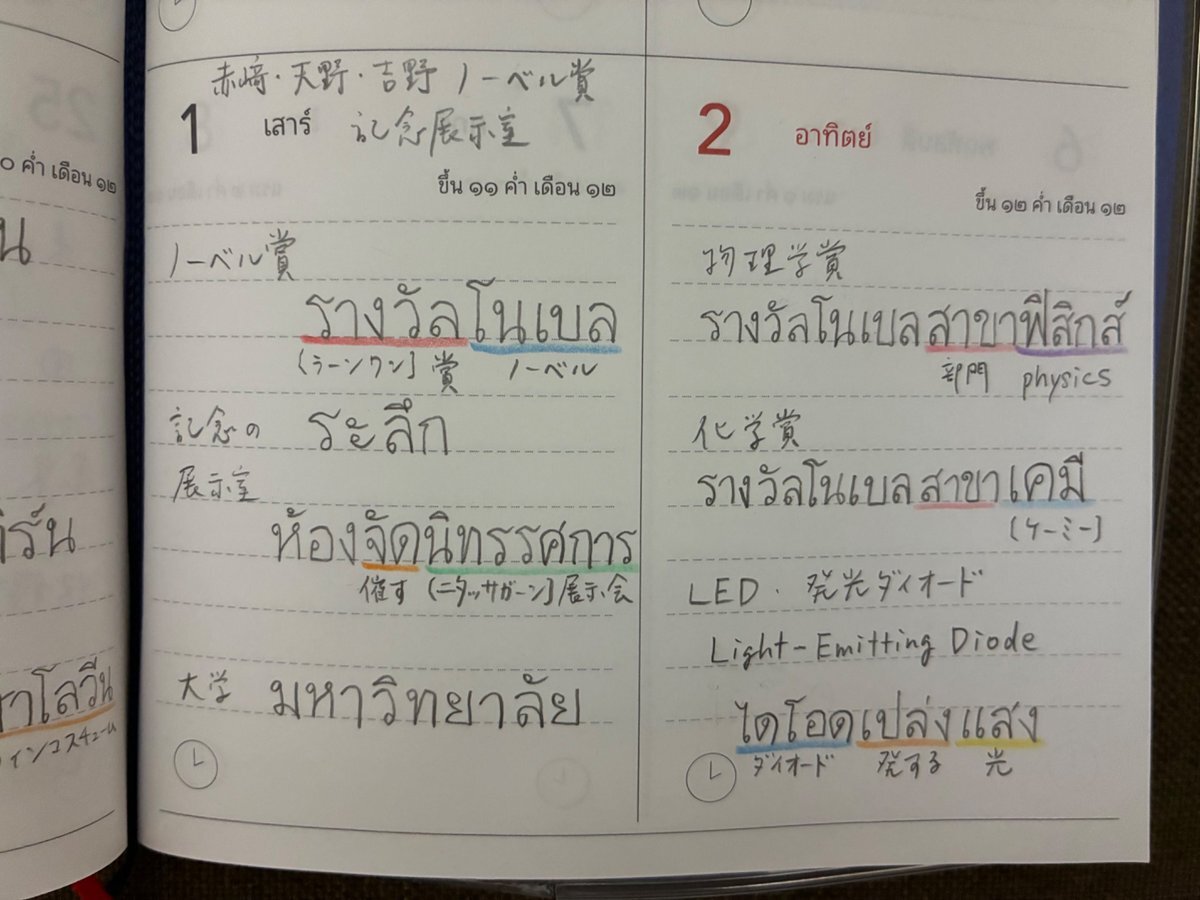 ๐ ค่ำ เดือน ๑๒
赤﨑・天野・吉野 ノーベル賞
1 เสาร์ 記念展示室
ขึ้น ๑๑ ค่ำ เดือน ๑๒
ノーベル賞
รางวัลโนเบล
(ラーンワン) 賞 ノーベル
記念の ระลึก
展示室
ห้องจัดนิทรรศการ
催す (ニタッサガーン) 展示会
大学 มหาวิทยาลัย
2 อาทิตย์
ขึ้น ๑๒ ค่ำ เดือน ๑๒
物理学賞
รางวัลโนเบลสาขาฟิสิกส์
部門 physics
化学賞
รางวัลโนเบลสาขาเคมี
(ケーミー)
LED・発光ダイオード
Light-Emitting Diode
ไดโอดเปล่งแสง
ダイオード 発する 光